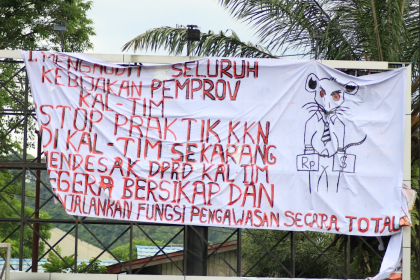 1. MENGAUDIT SELURUH
KEBIJAKAN PEMPROV
KAL-TIM
STOP PRAKTIK KKN
DI KAL-TIM SEKARANG
MENDESAK DPRD KALTIM
SEGERA BERSIKAP DAN
MENJALANKAN FUNGSI PENGAWASAN SECARA TOTAL
Rp $